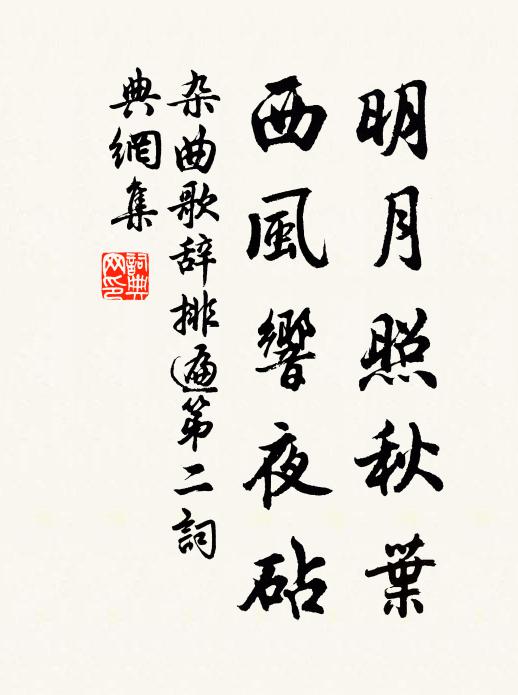 明月照秋葉
西風響夜砧
杂曲歌辞排遍第二詞
典網集
詞典网印